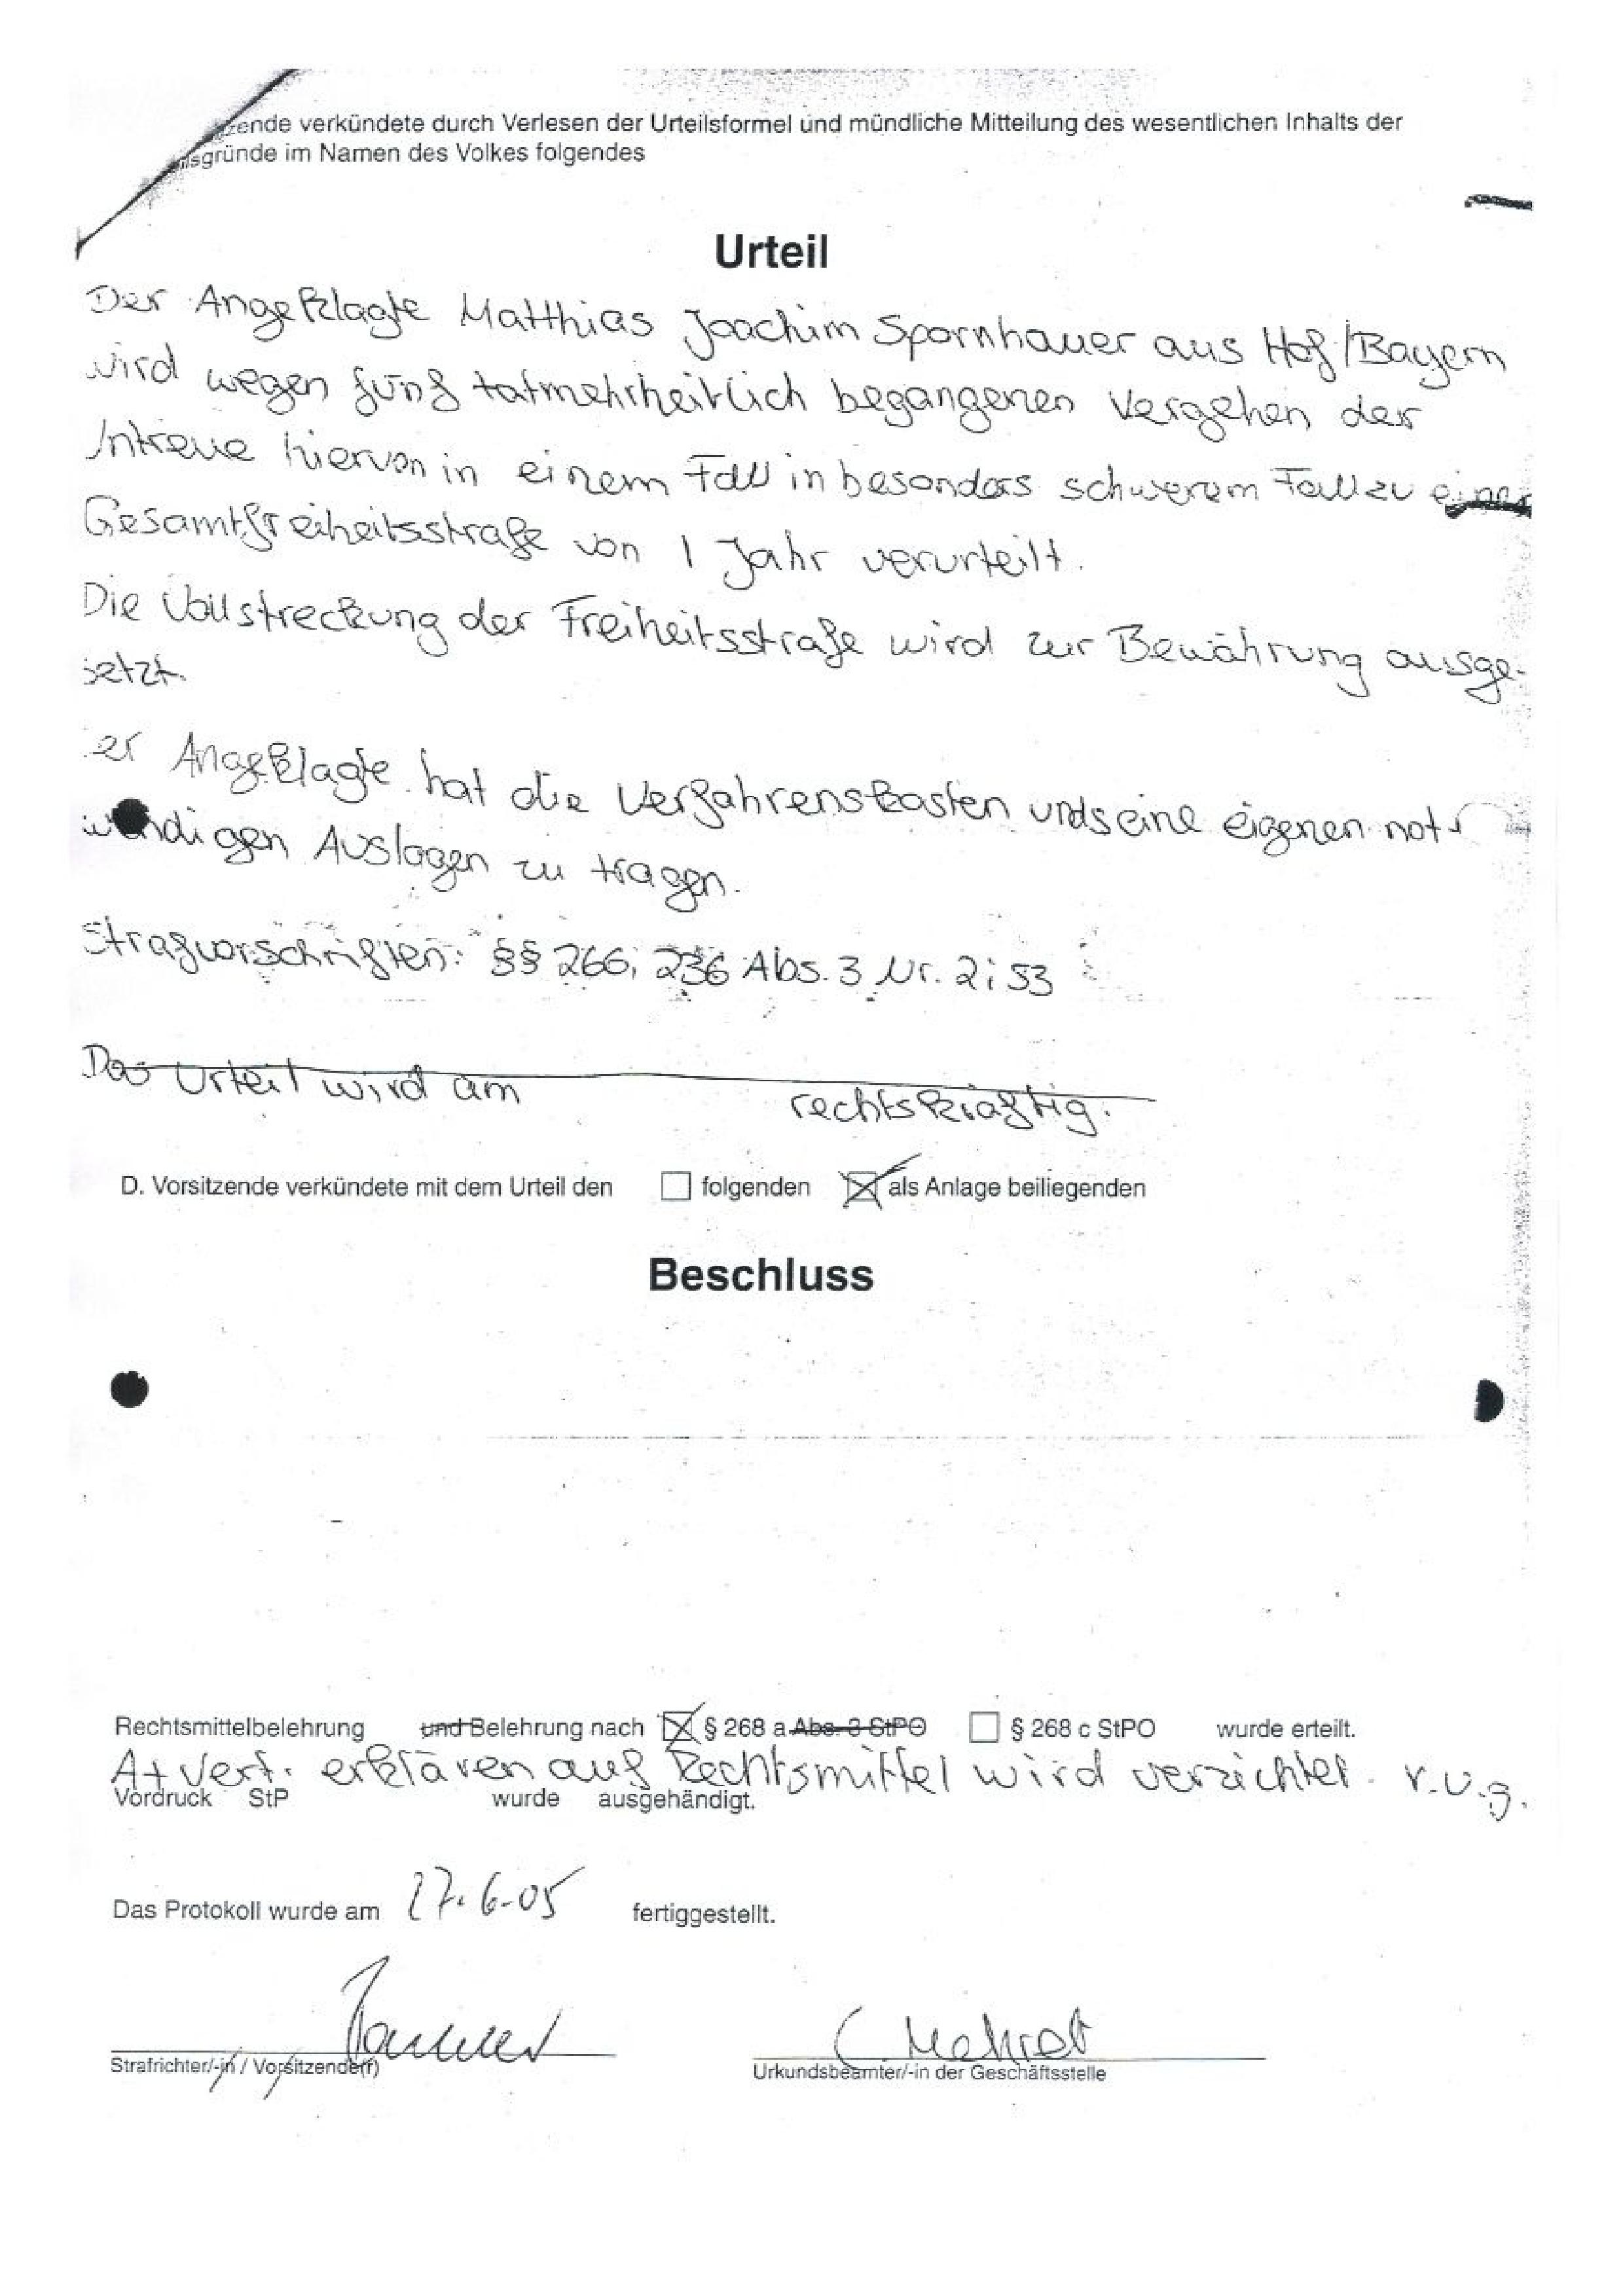 zende verkündete durch Verlesen der Urteilsformel und mündliche Mitteilung des wesentlichen Inhalts der
sgründe im Namen des Volkes folgendes
Urteil
Der Angeklagte Matthias Joachim Spornhauer aus Hof/Bayern
wird wegen fünf tatmehrheitlich begangenen Vergehen der
Untreue hiervon in einem Fall in besonders schwerem Fall zu einer
Gesamtfreiheitsstrafe von 1 Jahr verurteilt.
Die Vollstreckung der Freiheitsstrafe wird zur Bewährung ausge-
setzt.
er Angeklagte hat die Verfahrenskosten und seine eigenen not-
wendigen Auslagen zu tragen.
Strafvorschriften: §§ 266, 236 Abs. 3 Nr. 2; 53
Das Urteil wird am rechtskräftig.
D. Vorsitzende verkündete mit dem Urteil den folgenden als Anlage beiliegenden
Beschluss
Rechtsmittelbelehrung und Belehrung nach § 268 a Abs. 3 StPO § 268 c StPO wurde erteilt.
A + Vert. erklären auf Rechtsmittel wird verzichtet. v.u.g.
Vordruck StP wurde ausgehändigt.
Das Protokoll wurde am 27.6.05 fertiggestellt.
Strafrichter/-in / Vorsitzende(r)
Urkundsbeamter/-in der Geschäftsstelle